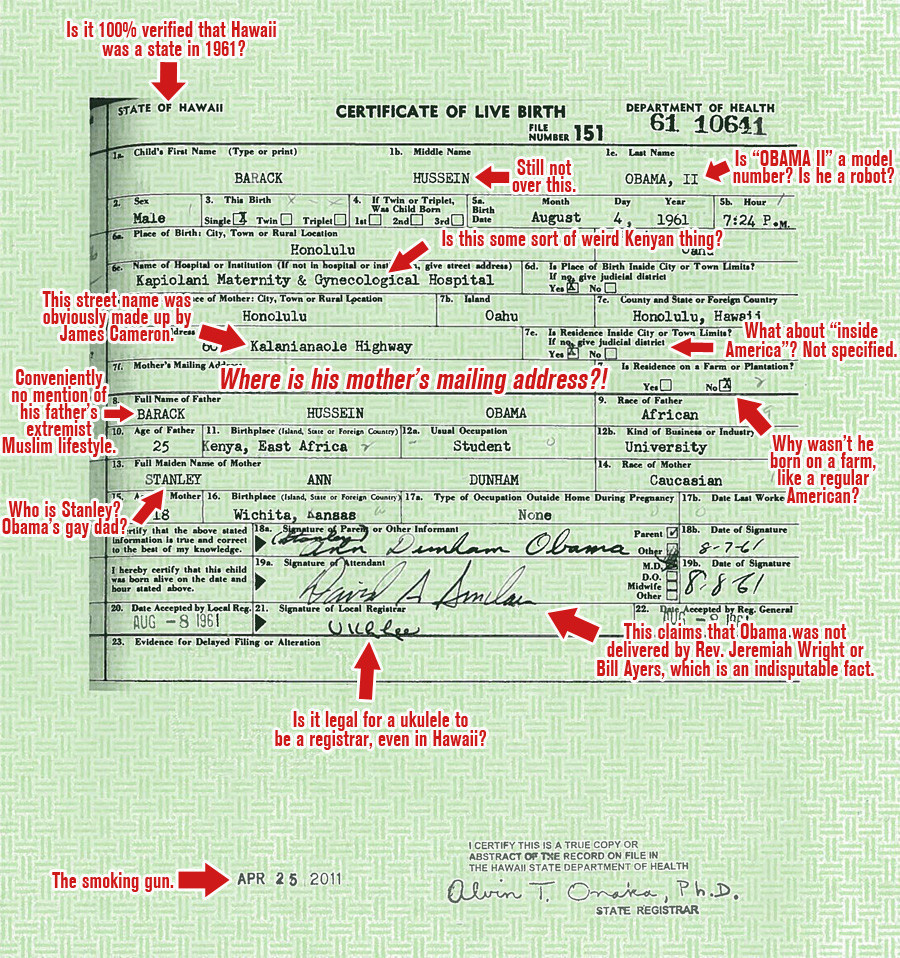 Is it 100% verified that Hawaii
was a state in 1961?
STATE OF HAWAII
CERTIFICATE OF LIVE BIRTH
DEPARTMENT OF HEALTH
FILE
NUMBER 151
61 10641
1a. Child's First Name (Type or print)
1b. Middle Name
1c. Last Name
BARACK
HUSSEIN
OBAMA, II
Still not
over this.
Is "OBAMA II" a model
number? Is he a robot?
2. Sex
Male
3. This Birth
Single X Twin Triplet
4. If Twin or Triplet,
Was Child Born
1st 2nd 3rd
5a.
Birth
Date
Month Day Year
August 4, 1961
5b. Hour
7:24 P.M.
6a. Place of Birth: City, Town or Rural Location
Honolulu
Is this some sort of weird Kenyan thing?
6c. Name of Hospital or Institution (If not in hospital or give street address)
Kapiolani Maternity & Gynecological Hospital
6d. Is Place of Birth Inside City or Town Limits?
If no, give judicial district
Yes X No
This street name was
obviously made up by
James Cameron.
of Mother: City, Town or Rural Location
Honolulu
7b. Island
Oahu
7c. County and State or Foreign Country
Honolulu, Hawaii
Kalanianaole Highway
7e. Is Residence Inside City or Town Limits?
If no, give judicial district
Yes X No
What about "inside
America"? Not specified.
7f. Mother's Mailing
Where is his mother's mailing address?!
Is Residence on a Farm or Plantation?
Yes No X
Conveniently
no mention of
his father's
extremist
Muslim lifestyle.
8. Full Name of Father
BARACK HUSSEIN OBAMA
9. Race of Father
African
10. Age of Father
25
11. Birthplace (Island, State or Foreign Country)
Kenya, East Africa
12a. Usual Occupation
Student
12b. Kind of Business or Industry
University
Why wasn't he
born on a farm,
like a regular
American?
13. Full Maiden Name of Mother
STANLEY ANN DUNHAM
14. Race of Mother
Caucasian
Who is Stanley?
Obama's gay dad?
15. Mother
18
16. Birthplace (Island, State or Foreign Country)
Wichita, Kansas
17a. Type of Occupation Outside Home During Pregnancy
None
17b. Date Last Worke
certify that the above stated
information is true and correct
to the best of my knowledge.
18a. Signature of Parent or Other Informant
(Stanley) Ann Dunham Obama
Parent
Other
18b. Date of Signature
8-7-61
I hereby certify that this child
was born alive on the date and
hour stated above.
19a. Signature of Attendant
David A Sinclair
M.D.
D.O.
Midwife
Other
19b. Date of Signature
8-8-61
20. Date Accepted by Local Reg.
AUG -8 1961
21. Signature of Local Registrar
UKLLee
22. Date Accepted by Reg. General
AUG
This claims that Obama was not
delivered by Rev. Jeremiah Wright or
Bill Ayers, which is an indisputable fact.
23. Evidence for Delayed Filing or Alteration
Is it legal for a ukulele to
be a registrar, even in Hawaii?
The smoking gun.
APR 25 2011
I CERTIFY THIS IS A TRUE COPY OR
ABSTRACT OF THE RECORD ON FILE IN
THE HAWAII STATE DEPARTMENT OF HEALTH
Alvin T. Onaka, Ph.D.
STATE REGISTRAR